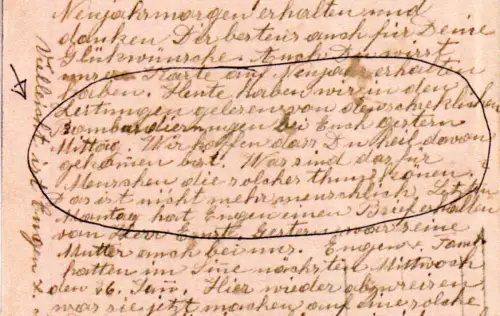 Neujahrsmorgen erhalten und
danken Dir bestens auch für Deine
Glükwünsche. Auch Du wirst
unsere Karte auf Neujahr erhalten
haben. Heute haben wir in den
Zeitungen gelesen von den schreklichen
Bombardierungen bei Euch gestern
Mittag. Wir hoffen dass Du heil davon
gekomen bist. Was sind das für
Menschen die solches thun könen.
das ist nicht mehr menschlich. Letzten
Montag hat Eugen einen Brief erhalten
von Herr Ernst, Gestern war seine
Mutter auch bei uns. Eugen &
hatten im Sine nächsten Mittwoch
den 26. Jan. Hier wieder abzureisen
was sie jetzt machen auf eine solche
Vielleicht ist Eugen &